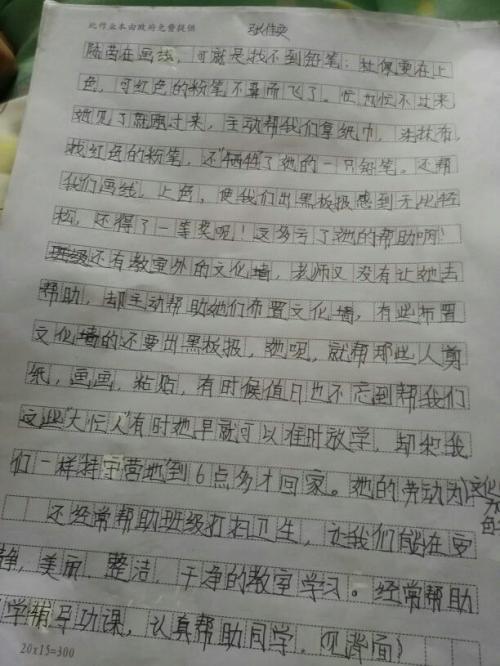 此作业本由政府免费提供
陆茜在画线，可就是找不到铅笔；杜佩雯在上
色，可红色的粉笔不翼而飞了。忙也忙不过来，
她见了就跑过来，主动帮我们拿纸巾，抹布，
找红色的粉笔，还"牺牲"了她的一只铅笔。还帮
我们画线，上色，使我们出黑板报感到无比轻
松，还得了一等奖呢！这多亏了她的帮助啊！
还有教室外的文化墙，老师又没有让她去
帮助，却主动帮助她们布置文化墙，有些布置
文化墙的还要出黑板报，她呢，就帮那些人剪
纸，画画，粘贴，有时候值日也不忘到帮我们
这些"大忙人"有时她早就可以准时放学，却和我
们一样"特守营地"到6点多才回家。她的劳动为
还经常帮助班级打扫卫生，让我们能在安
静，美丽，整洁，干净的教室学习。经常帮助
学辅导功课，认真帮助同学。（见背面）
20x15=300